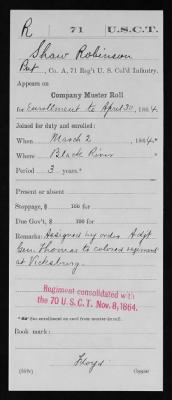 R | 71 | U.S.C.T.
Shaw Robinson
Pvt, Co. A, 71 Reg't U. S. Col'd Infantry.
Appears on
Company Muster Roll
for Enrollment to April 30, 1864.
Joined for duty and enrolled:
When March 2, 1864*
Where Black River
Period 3 years.*
Present or absent
Stoppage, $ 100 for
Due Gov't, $ 100 for
Remarks: Assigned by order Adjt
Gen Thomas to colored regiment
at Vicksburg.
Regiment consolidated with
the 70 U.S.C.T. Nov. 8, 1864.
*See enrollment on card from muster-in roll.
Book mark:
Floyd
(358) Copyist.